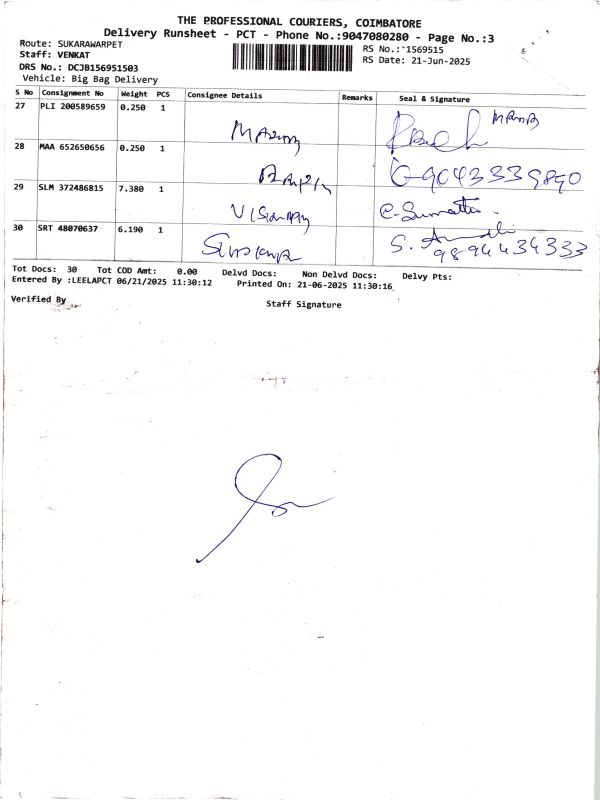 THE PROFESSIONAL COURIERS, COIMBATORE
Delivery Runsheet - PCT - Phone No.:9047080280 - Page No.:3
Route: SUKARAWARPET
Staff: VENKAT
DRS No.: DCJB156951503
Vehicle: Big Bag Delivery
RS No.: 1569515
RS Date: 21-Jun-2025
S No Consignment No Weight PCS Consignee Details Remarks Seal & Signature
27 PLI 200589659 0.250 1
28 MAA 652650656 0.250 1
9043339890
29 SLM 372486815 7.380 1
30 SRT 48070637 6.190 1
9894434333
Tot Docs: 30 Tot COD Amt: 0.00 Delvd Docs: Non Delvd Docs: Delvy Pts:
Entered By :LEELAPCT 06/21/2025 11:30:12 Printed On: 21-06-2025 11:30:16
Verified By
Staff Signature